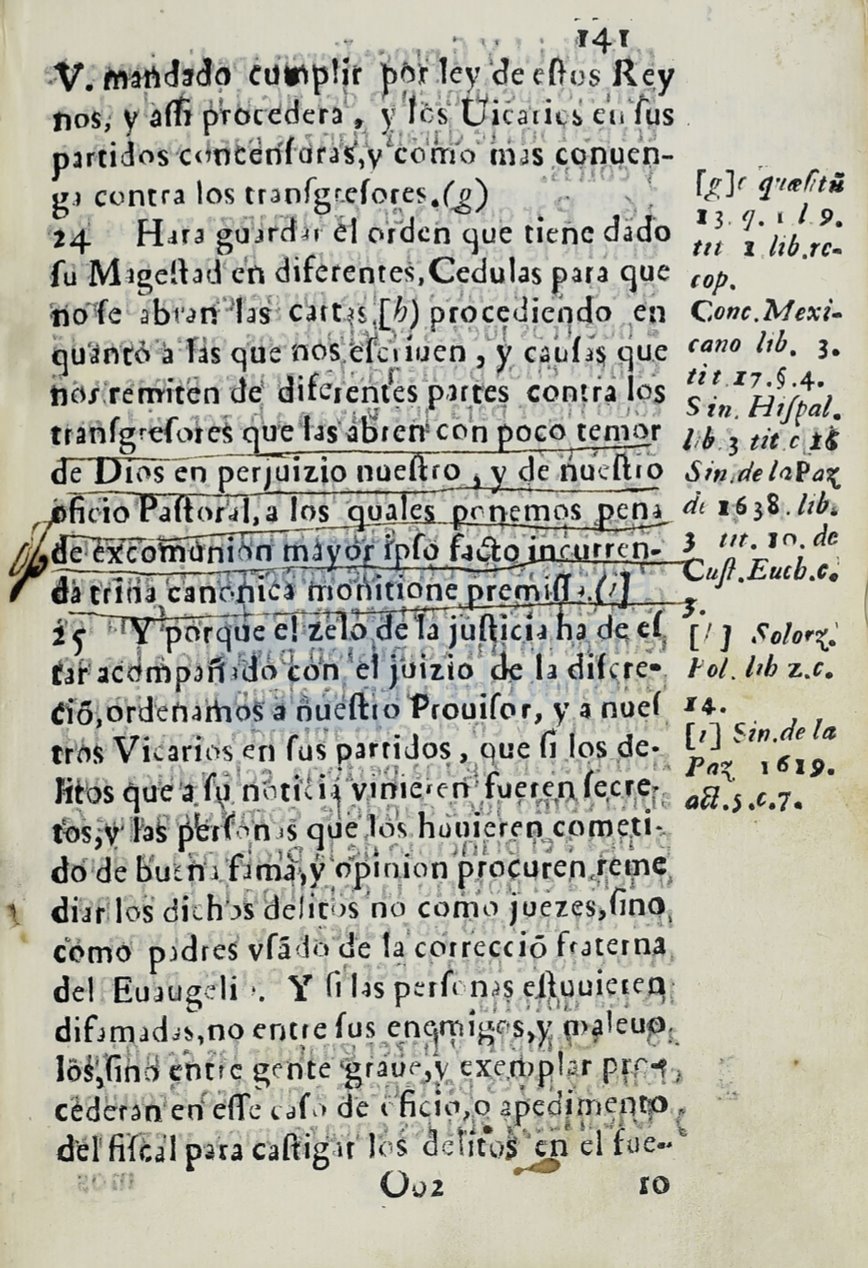 141
V. mandado cumplir por ley de eſtos Rey
nos, y aſſi procedera, y los Uicarios en ſus
partidos con cenſuras, y como mas conuen-
ga contra los tranſgreſores.(g)
24 Hara guardar el orden que tiene dado
ſu Mageſtad en diferentes, Cedulas para que
no ſe abran las cartas,[h) procediendo en
quanto a las que nos eſcriuen, y cauſas que
nos remiten de diferentes partes contra los
tranſgreſores que las abren con poco temor
de Dios en perjuizio nueſtro, y de nueſtro
oficio Paſtoral, a los quales ponemos pena
de excomunion mayor ipſo facto incurren-
da trina canonica monitione premiſſa.(i]
25 Y porque el zelo de la juſticia ha de eſ
tar acompañado con el juizio de la diſcre-
ciõ, ordenamos a nueſtro Prouiſor, y a nueſ
tros Vicarios en ſus partidos, que ſi los de-
litos que a ſu noticia vinieren fueren ſecre-
tos, y las perſonas que los houieren cometi-
do de buena fama, y opinion procuren reme
diar los dichos delitos no como juezes, ſino
como padres vſãdo de la correcciõ fraterna
del Euaugelio. Y ſi las perſonas eſtuuieren
difamadas, no entre ſus enemigos, y maleuo
los, ſino entre gente graue, y exemplar pro-
cederan en eſſe caſo de oficio, o apedimento
del fiſcal para caſtigar los delitos en el fue-
Oo2 ro
[g]c quæſitũ
13. q. 1 l 9.
tit 1 lib. re-
cop.
Conc. Mexi-
cano lib. 3.
tit 17. §. 4.
Sin. Hiſpal.
lib 3 tit c 18
Sin. de la Paz
de 1638. lib.
3 tit. 10. de
Cuſt. Euch. c.
5.
[h] Solorz.
Pol. lib 2. c.
14.
[i] Sin. de la
Paz 1619.
act. 5. c. 7.